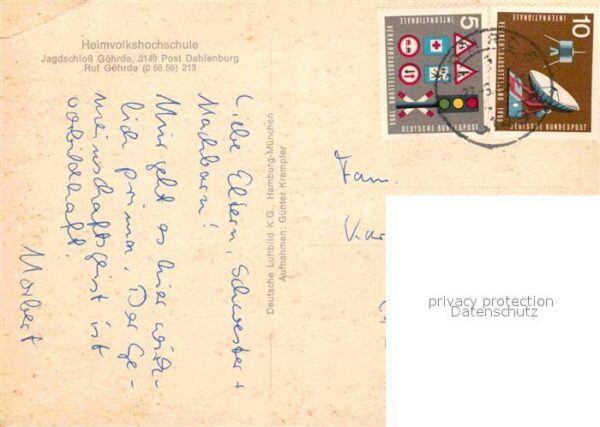 Heimvolkshochschule
Jagdschloß Göhrde, 3149 Post Dahlenburg
Ruf Göhrde (0 58 56) 213
Liebe Eltern, Schwester +
Nachbarn!
Mir geht es hier wirk-
lich prima. Der Ge-
meinschaftsgeist ist
vorbildhaft
Norbert
Deutsche Luftbild K.G., Hamburg-München
Aufnahmen: Günter Krampfer
5
INTERNATIONALE
VERKEHRSAUSSTELLUNG
1965
DEUTSCHE BUNDESPOST
10
INTERNATIONALE
VERKEHRSAUSSTELLUNG 1965
DEUTSCHE BUNDESPOST
Fam.
privacy protection
Datenschutz